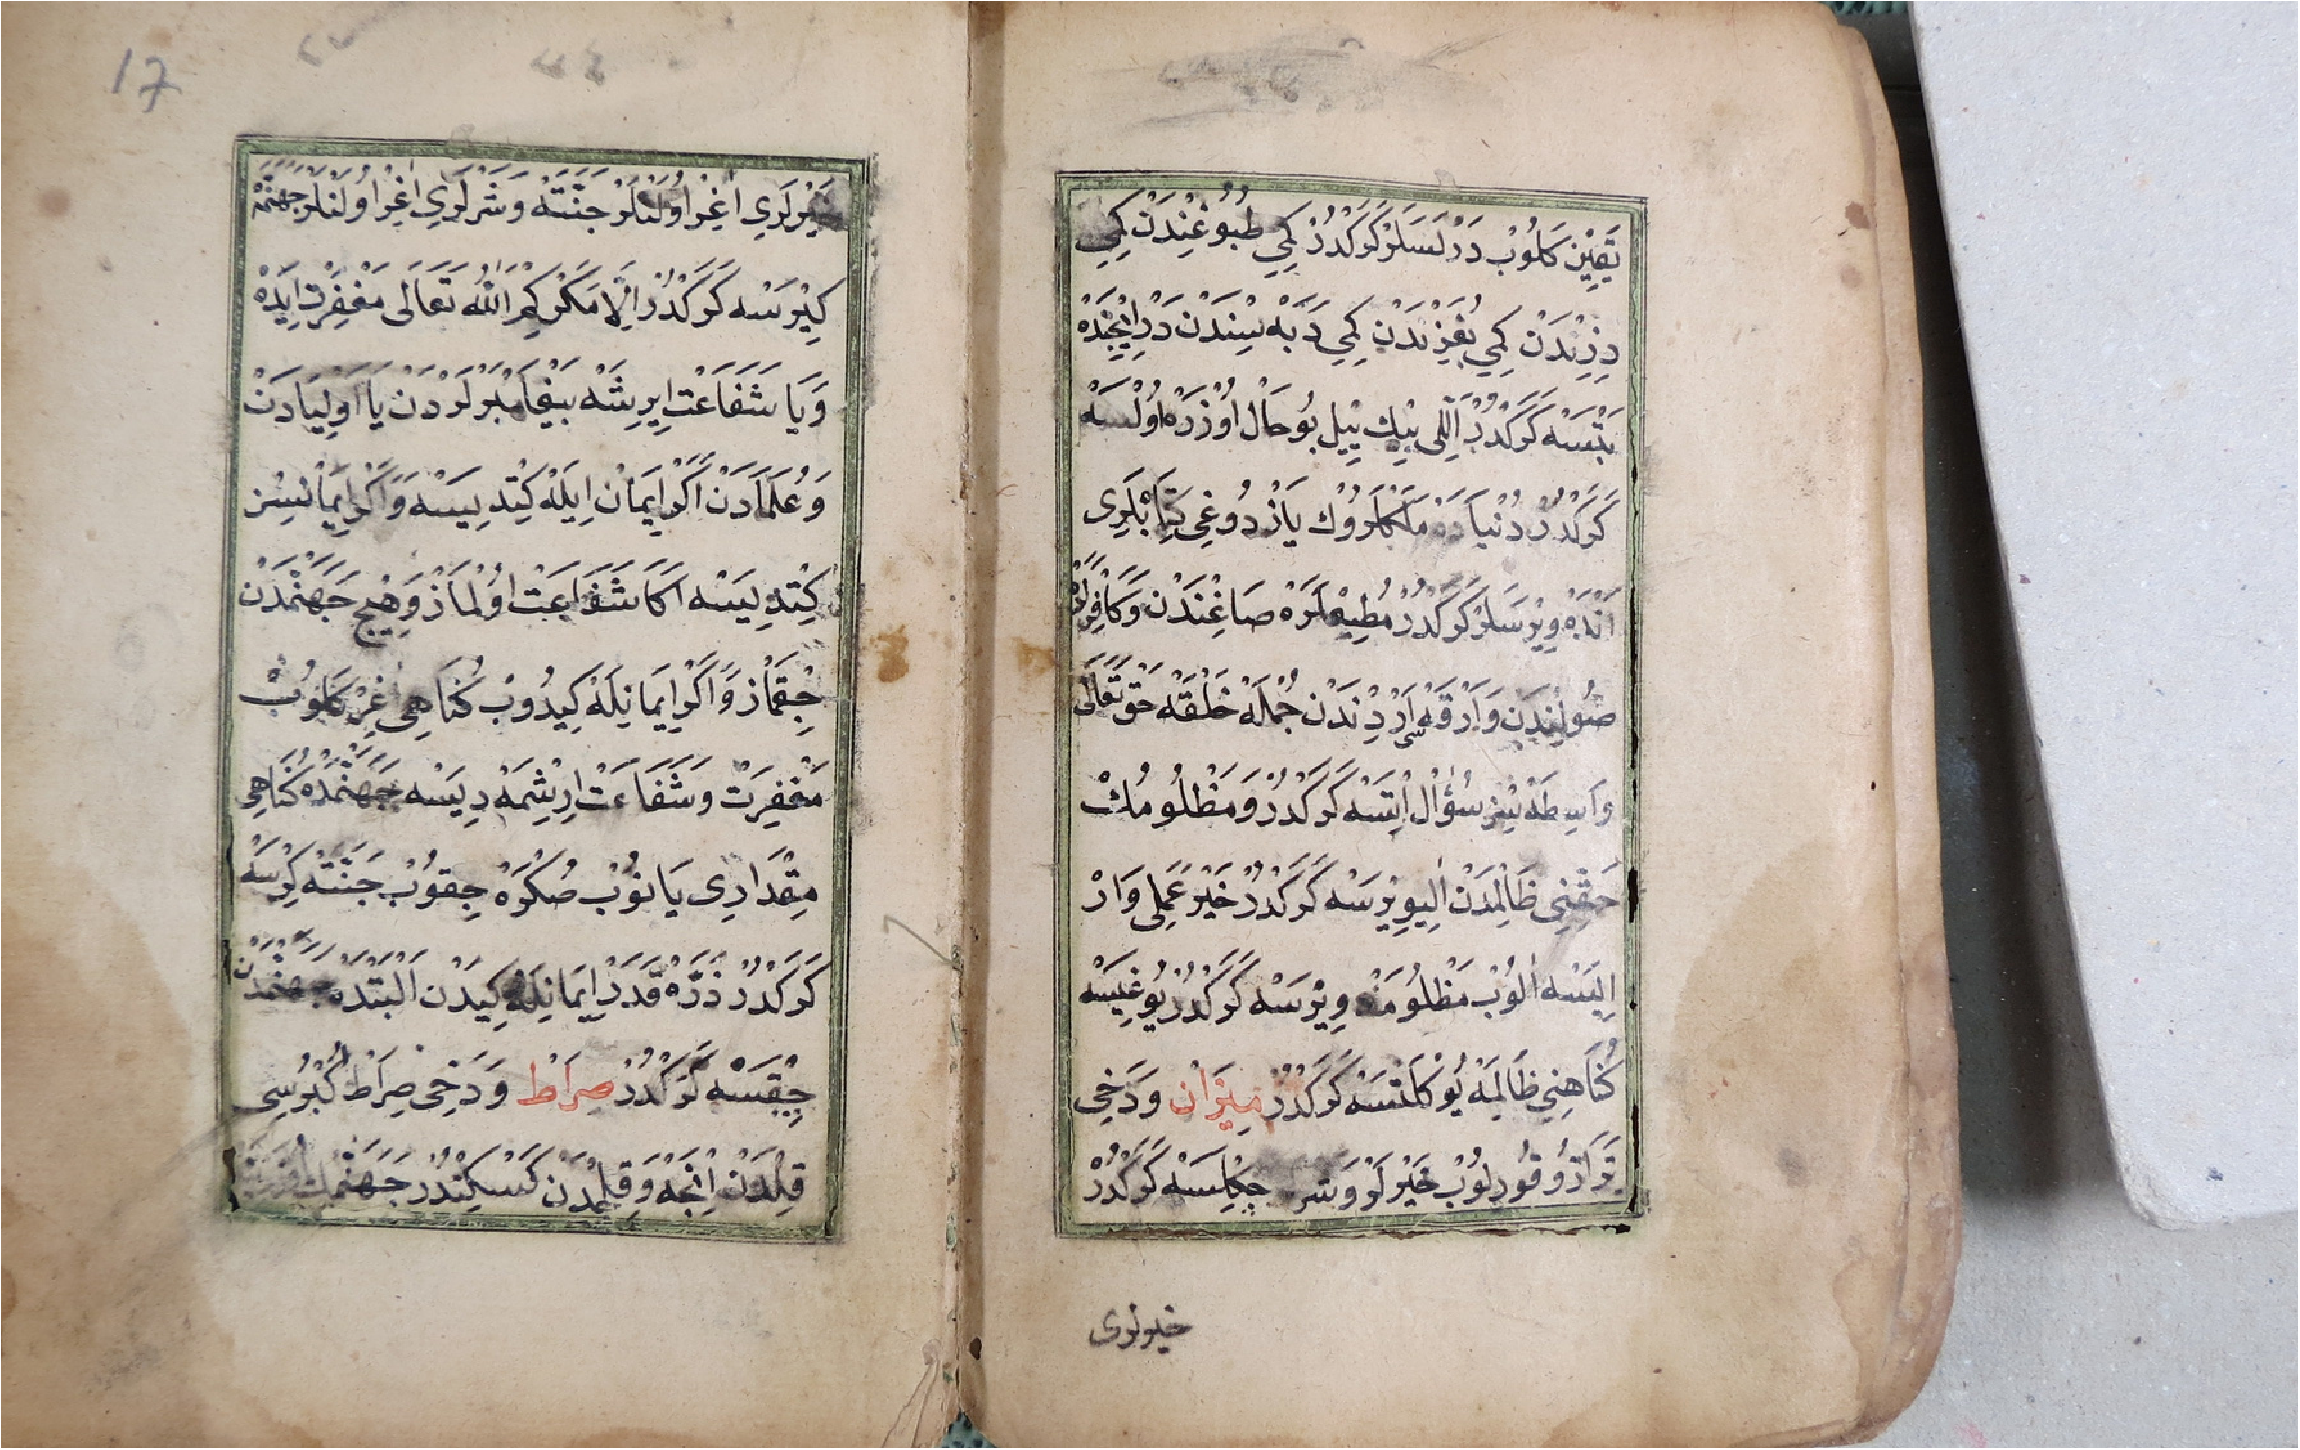 يَقِيْنْ كَلُوبْ دَرْلَسَلَرْ كَرَكْدُرْ كِمِي طُپُوغُنْدَنْ كِمِي
دِزِنْدَنْ كِمِي بُغَزِنْدَنْ كِمِي دَپَه سِنْدَنْ دَرْ اِيچِنْدَه
بَتْسَه كَرَكْدُرْ اَللِّي بِيكْ يِيلْ بُو حَالْ اُوزَرَه اُولْسَه
كَرَكْدُرْ دُنْيَادَه مَلَكْلَرُوكْ يَازْدُوغِي كِتَابْلَرِي
اَنْدَه وِيرْسَلَرْ كَرَكْدُرْ مُطِيعْلَرَه صَاغِنْدَنْ وَكَافِرْلَرَه
صُولِنْدَنْ وَاَرْقَه سِي اَرْدِنْدَنْ جُمْلَه خَلْقَه حَقْ تَعَالَى
وَاسِطَه سِيزْ سُؤَالْ اِتْسَه كَرَكْدُرْ وَمَظْلُومُكْ
حَقِّنِي ظَالِمْدَنْ اَلِيوِيرْسَه كَرَكْدُرْ خَيْرْ عَمَلِي وَارْ
اِيسَه اَلُوبْ مَظْلُومَه وِيرْسَه كَرَكْدُرْ يُوغِيسَه
كُنَاهِنِي ظَالِمَه يُوكْلَتْسَه كَرَكْدُرْ مِيزَانْ وَدَخِي
تَرَازُو قُورِلُوبْ خَيْرْ لَرْ وَشَرْ چَكِلْسَه كَرَكْدُرْ
خيرلرى
خَيْرْلَرِي اَغِرْ اُولَنْلَرْ جَنَّتَه وَشَرْلَرِي اَغِرْ اُولَنْلَرْ جَهَنَّمَه
كِيرْسَه كَرَكْدُرْ اِلَّا مَكَرْ كِمْ اَللهْ تَعَالَى مَغْفِرَتْ اِيدَه
وَيَا شَفَاعَتْ اِيرِشَه پَيْغَامْبَرْلَرْدَنْ يَا اَوْلِيَادَنْ
وَعُلَمَادَنْ اَكَرْ اِيمَانْ اِيلَه كِيتْدِيسَه وَاَكَرْ اِيمَانْسِزْ
كِتْدِيسَه اَكَا شَفَاعَتْ اُولْمَازْ وَهِيچْ جَهَنَّمْدَنْ
چِقْمَازْ وَاَكَرْ اِيمَانِلَه كِيدُوبْ كُنَاهِي اَغِرْ كَلُوبْ
مَغْفِرَتْ وَشَفَاعَتْ اِرِشْمَه دِيسَه جَهَنَّمْدَه كُنَاهِي
مِقْدَارِي يَانُوبْ صُكْرَه چِقُوبْ جَنَّتَه كِرْسَه
كَرَكْدُرْ ذَرَّه قَدَرْ اِيمَانِلَه كِيدَنْ اَلْبَتَّه جَهَنَّمْدَنْ
چِقْسَه كَرَكْدُرْ صِرَاطْ وَدَخِي صِرَاطْ كُپْرُسِي
قِلْدَنْ اِنْجَه وَقِلِجْدَنْ كَسْكِنْدُرْ جَهَنَّمُكْ
17